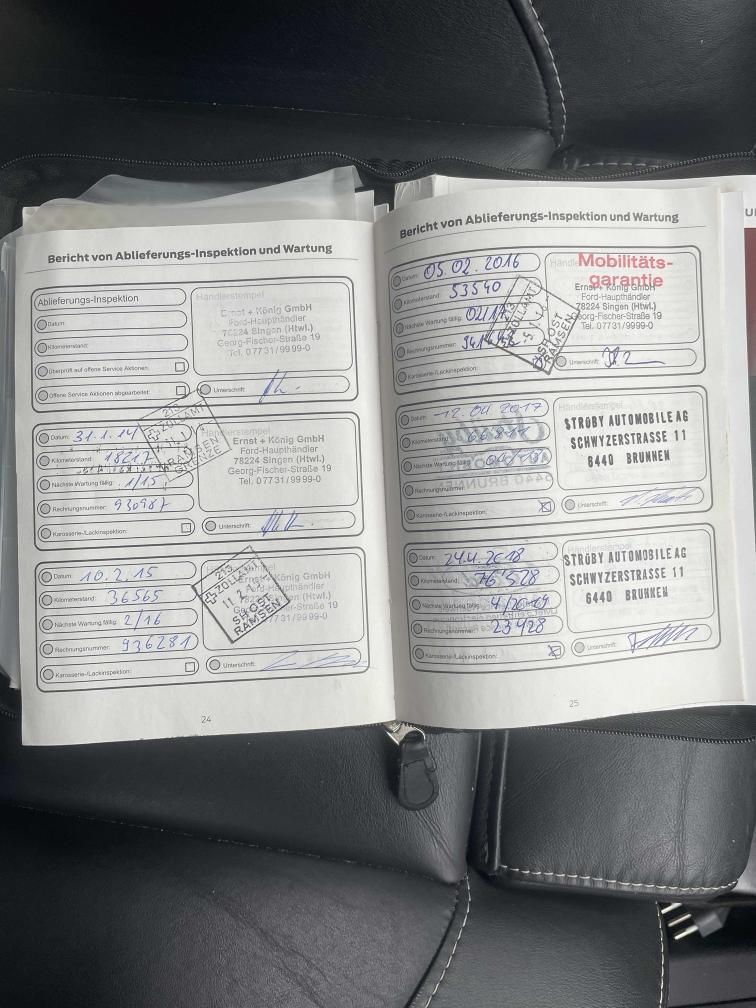 Bericht von Ablieferungs-Inspektion und Wartung
Ablieferungs-Inspektion
Datum:
Kilometerstand:
Überprüft auf offene Service Aktionen:
Offene Service Aktionen abgearbeitet:
Händlerstempel
Ernst + König GmbH
Ford-Haupthändler
78224 Singen (Htwl.)
Georg-Fischer-Straße 19
Tel. 07731/9999-0
Unterschrift:
Datum: 31.1.14
Kilometerstand: 18217
Nächste Wartung fällig: 1/15
Rechnungsnummer: 930987
Karosserie-/Lackinspektion:
Händlerstempel
Ernst + König GmbH
Ford-Haupthändler
78224 Singen (Htwl.)
Georg-Fischer-Straße 19
Tel. 07731/9999-0
Unterschrift:
213
ZOLLAMT
RAMSEN
GRENZE
Datum: 10.2.15
Kilometerstand: 36565
Nächste Wartung fällig: 2/16
Rechnungsnummer: 936281
Karosserie-/Lackinspektion:
Ernst + König GmbH
Ford-Haupthändler
78224 Singen (Htwl.)
Georg-Fischer-Straße 19
Tel. 07731/9999-0
Unterschrift:
213
ZOLLAMT
SH OST
RAMSEN
24
Bericht von Ablieferungs-Inspektion und Wartung
Datum: 05.02.2016
Kilometerstand: 53540
Nächste Wartung fällig: 02/17
Rechnungsnummer:
Karosserie-/Lackinspektion:
Mobilitäts-
garantie
Ernst + König GmbH
Ford-Haupthändler
78224 Singen (Htwl.)
Georg-Fischer-Straße 19
Tel. 07731/9999-0
Unterschrift:
213
ZOLLAMT
SH OST
RAMSEN
Datum: 12.04.2017
Kilometerstand:
Nächste Wartung fällig:
Rechnungsnummer:
Karosserie-/Lackinspektion:
STROBY AUTOMOBILE AG
SCHWYZERSTRASSE 11
6440 BRUNNEN
Unterschrift:
Datum: 24.4.2018
Kilometerstand: 76528
Nächste Wartung fällig: 4/2019
Rechnungsnummer: 23428
Karosserie-/Lackinspektion:
Händlerstempel
STROBY AUTOMOBILE AG
SCHWYZERSTRASSE 11
6440 BRUNNEN
Unterschrift:
25